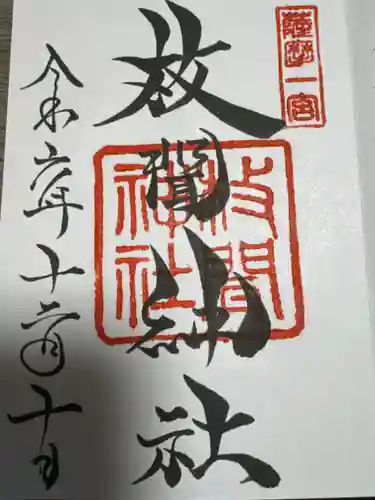 薩摩一宮
枚聞神社
枚聞
神社
令和六年十二月十日